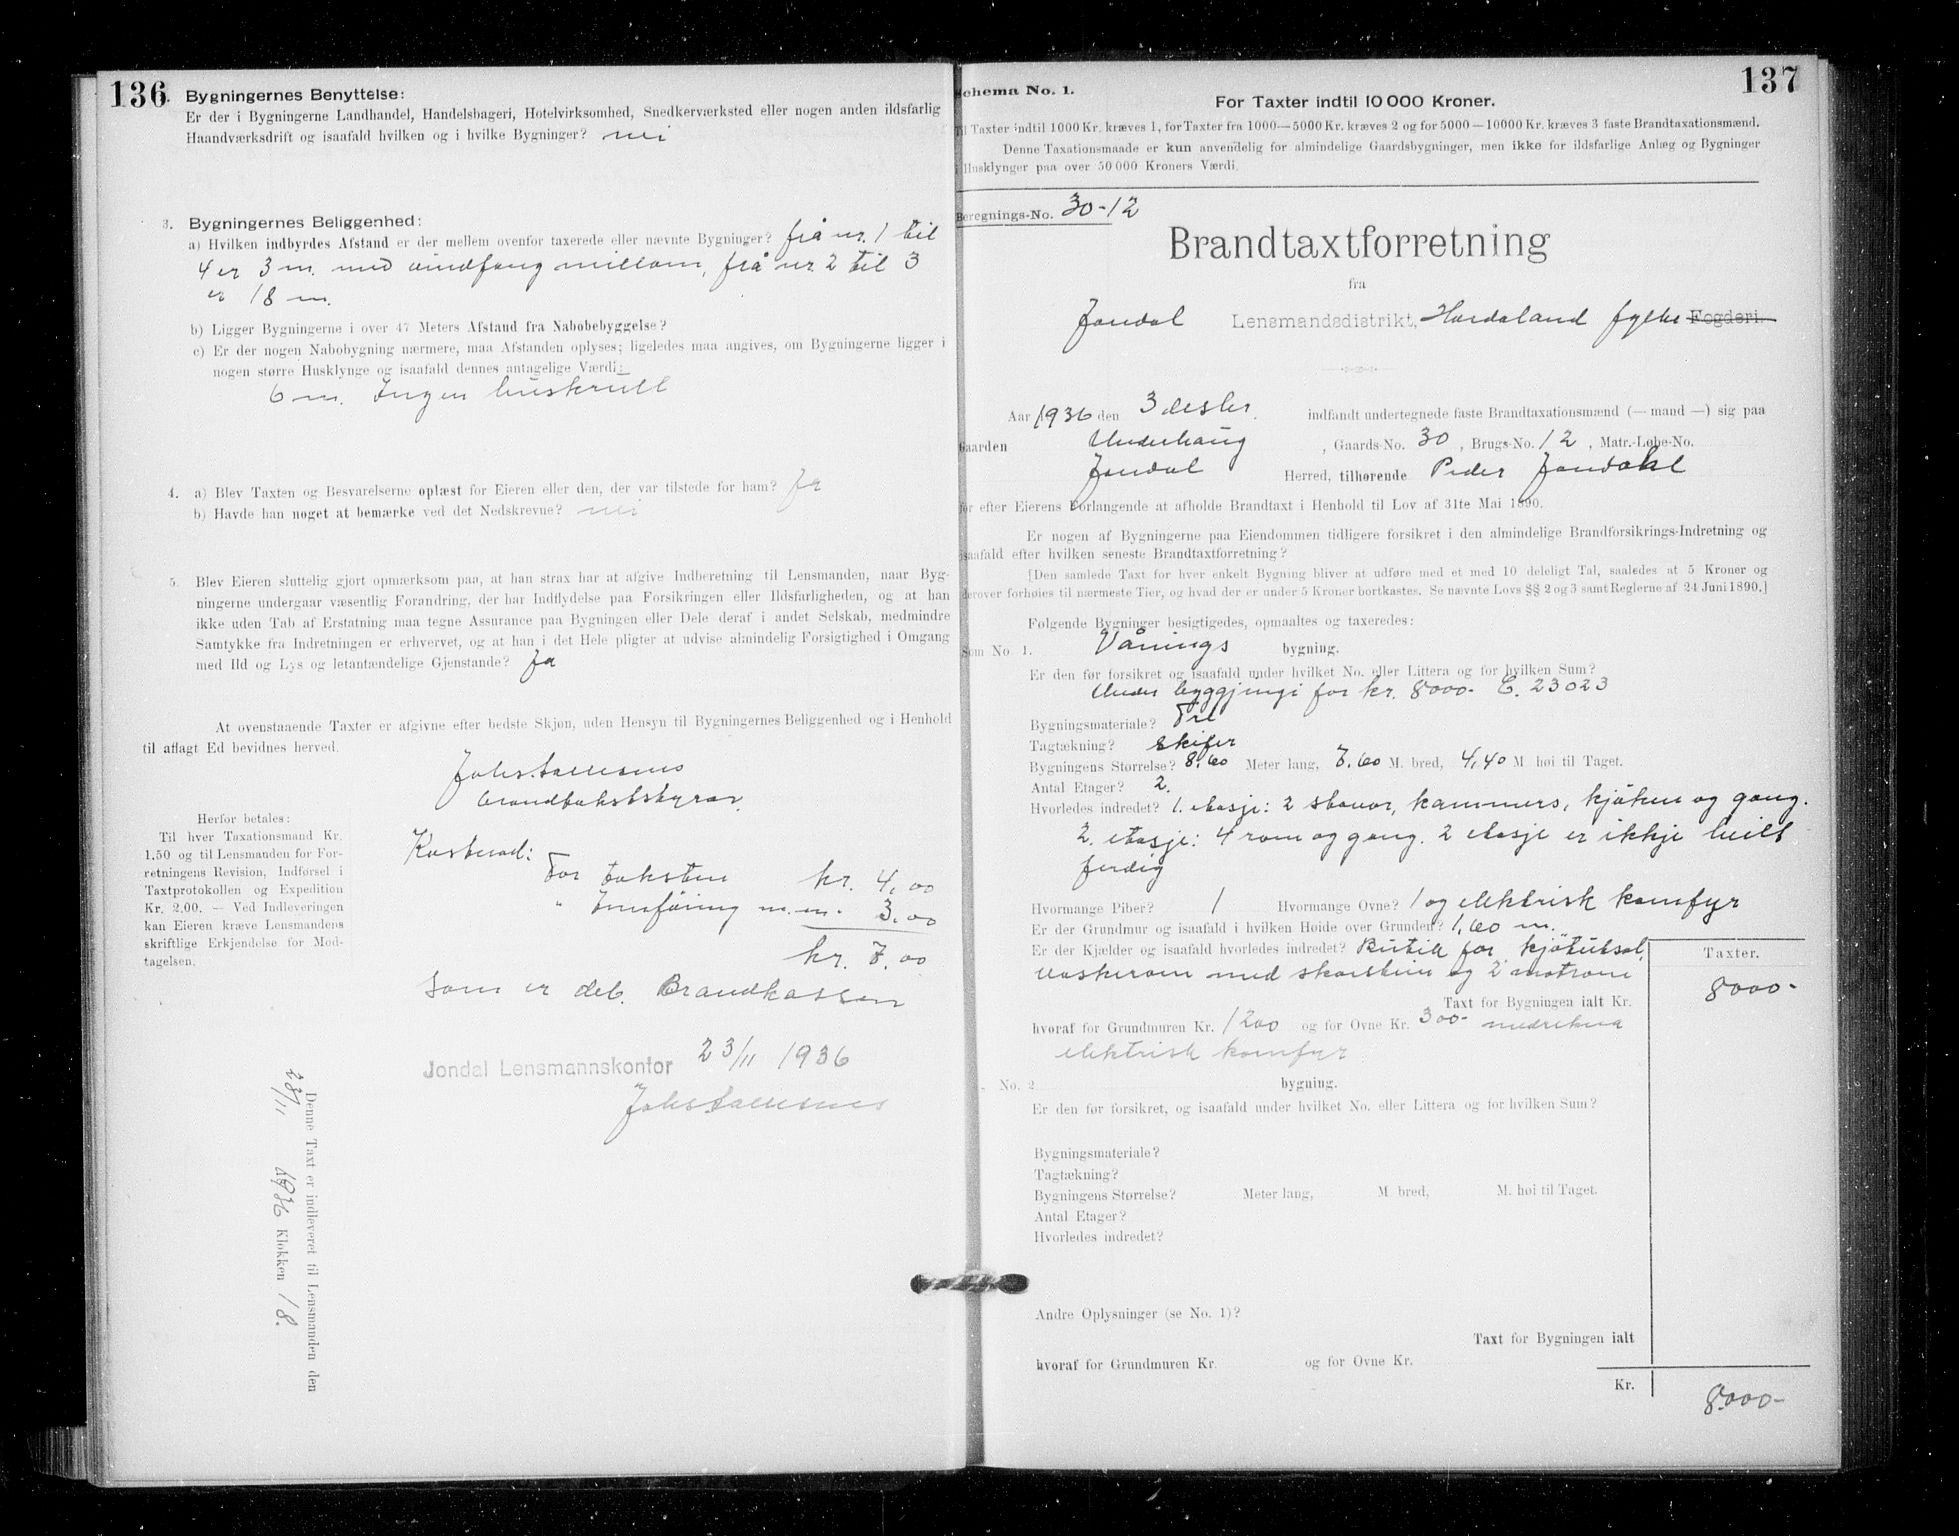 136
Bygningernes Benyttelse:
Er der i Bygningerne Landhandel, Handelsbageri, Hotelvirksomhed, Snedkerværksted eller nogen anden ildsfarlig
Haandværksdrift og isaafald hvilken og i hvilke Bygninger? nei
3. Bygningernes Beliggenhed:
a) Hvilken indbyrdes Afstand er der mellem ovenfor taxerede eller nævnte Bygninger? frå nr. 1 til
4 er 3 m. med vindfang millom, frå nr 2 til 3
er 18 m.
b) Ligger Bygningerne i over 47 Meters Afstand fra Nabobebyggelse?
c) Er der nogen Nabobygning nærmere, maa Afstanden oplyses; ligeledes maa angives, om Bygningerne ligger i
nogen større Husklynge og isaafald dennes antagelige Værdi:
6 m. Ingen huskrull
4. a) Blev Taxten og Besvarelserne oplæst for Eieren eller den, der var tilstede for ham? Ja
b) Havde han noget at bemærke ved det Nedskrevne? nei
5. Blev Eieren sluttelig gjort opmærksom paa, at han strax har at afgive Indberetning til Lensmanden, naar Byg-
ningerne undergaar væsentlig Forandring, der har Indflydelse paa Forsikringen eller Ildsfarligheden, og at han
ikke uden Tab af Erstatning maa tegne Assurance paa Bygningen eller Dele deraf i andet Selskab, medmindre
Samtykke fra Indretningen er erhvervet, og at han i det Hele pligter at udvise almindelig Forsigtighed i Omgang
med Ild og Lys og letantændelige Gjenstande? Ja
At ovenstaaende Taxter er afgivne efter bedste Skjøn, uden Hensyn til Bygningernes Beliggenhed og i Henhold
til aflagt Ed bevidnes herved.
brandtakststyrar.
Herfor betales:
Til hver Taxationsmand Kr.
1.50 og til Lensmanden for For-
retningens Revision, Indførsel i
Taxtprotokollen og Expedition
Kr. 2.00. — Ved Indleveringen
kan Eieren kræve Lensmandens
skriftlige Erkjendelse for Mod-
tagelsen.
Kostnad:
For taksten kr. 4,00
" Innføring m.m. 3,00
kr. 7,00
som er deb. Brandkassen
Jondal Lensmannskontor 23/11 1936
Denne Taxt er indleveret til Lensmanden den
23/11 1936 Klokken 18.
137
Schema No. 1.
For Taxter indtil 10 000 Kroner.
Til Taxter indtil 1000 Kr. kræves 1, for Taxter fra 1000—5000 Kr. kræves 2 og for 5000—10000 Kr. kræves 3 faste Brandtaxationsmænd.
Denne Taxationsmaade er kun anvendelig for almindelige Gaardsbygninger, men ikke for ildsfarlige Anlæg og Bygninger
i Husklynger paa over 50 000 Kroners Værdi.
Beregnings-No. 30-12
Brandtaxtforretning
fra
Jondal Lensmandsdistrikt, Hordaland fylke Fogderi.
Aar 1936 den 3 desbr. indfandt undertegnede faste Brandtaxationsmænd (— mand —) sig paa
Gaarden Underhaug, Gaards-No. 30, Brugs-No. 12, Matr.-Løbe-No.
Jondal Herred, tilhørende Peder Jondahl
for efter Eierens Forlangende at afholde Brandtaxt i Henhold til Lov af 31te Mai 1890.
Er nogen af Bygningerne paa Eiendommen tidligere forsikret i den almindelige Brandforsikrings-Indretning og
isaafald efter hvilken seneste Brandtaxtforretning?
[Den samlede Taxt for hver enkelt Bygning bliver at udføre med et med 10 deleligt Tal, saaledes at 5 Kroner og
derover forhøies til nærmeste Tier, og hvad der er under 5 Kroner bortkastes. Se nævnte Lovs §§ 2 og 3 samt Reglerne af 24 Juni 1890.]
Følgende Bygninger besigtigedes, opmaaltes og taxeredes:
Som No 1. Vånings bygning.
Er den før forsikret og isaafald under hvilket No. eller Littera og for hvilken Sum?
Under byggjingi for kr. 8000- C. 23023
Bygningsmateriale? Tre
Tagtækning? skifer
Bygningens Størrelse? 8,60 Meter lang, 7,60 M. bred, 4,40 M høi til Taget.
Antal Etager? 2.
Hvorledes indredet? 1. etasje: 2 stovor, kammers, kjøken og gang.
2. etasje: 4 rom og gang. 2 etasje er ikkje heilt
ferdig
Hvormange Piber? 1 Hvormange Ovne? 1 og elektrisk komfyr
Er der Grundmur og isaafald i hvilken Høide over Grunden? 1,60 m.
Er der Kjælder og isaafald hvorledes indredet? Butik for kjøtutsal,
vaskerom med skorstein og 2 matrom
Taxter.
Taxt for Bygningen ialt Kr. 8000-
hvoraf for Grundmuren Kr. 1200 og for Ovne Kr. 300- medrekna
elektrisk komfyr
No. 2 bygning.
Er den før forsikret, og isaafald under hvilket No. eller Littera og for hvilken Sum?
Bygningsmateriale?
Tagtækning?
Bygningens Størrelse? Meter lang, M bred, M. høi til Taget.
Antal Etager?
Hvorledes indredet?
Andre Oplysninger (se No. 1)?
Taxt for Bygningen ialt
hvoraf for Grundmuren Kr. og for Ovne Kr.
Kr. 8000-